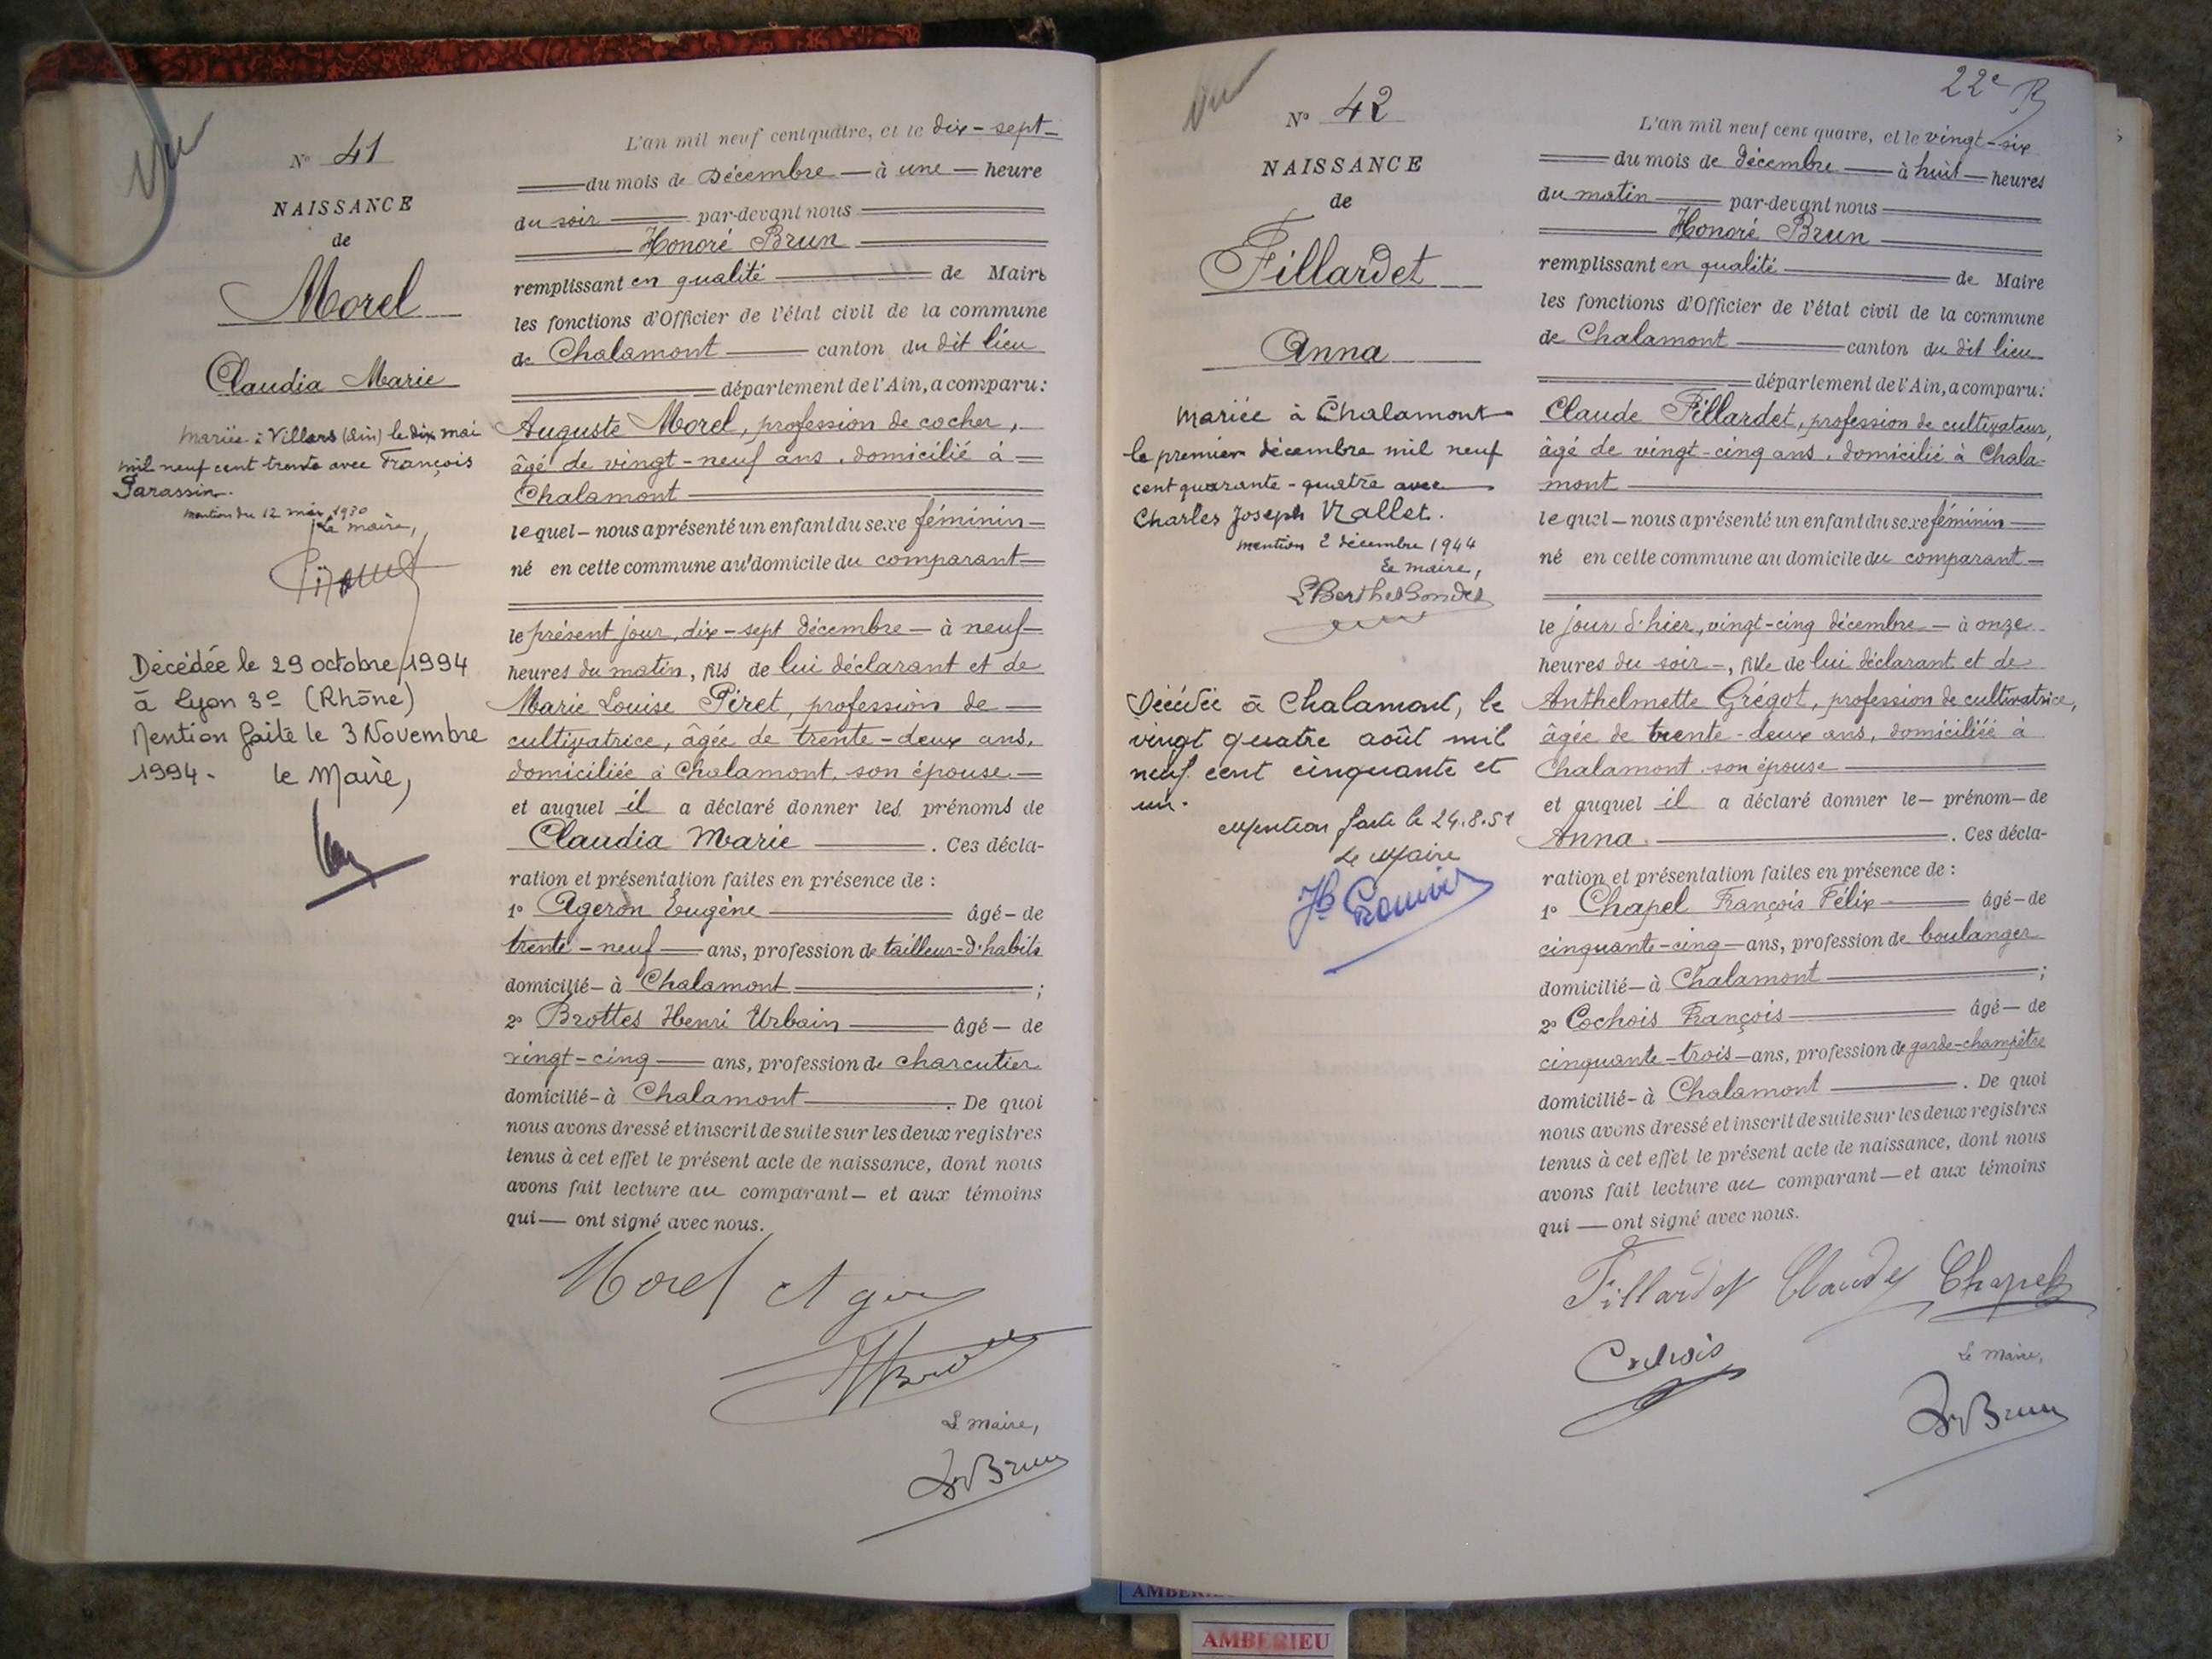 Vu
N° 41
NAISSANCE
de
Morel
Claudia Marie
mariée à Villars (Ain) le dix mai
mil neuf cent trente avec François
Sarassin.
mention du 12 mai 1930
Le maire,
Décédée le 29 octobre 1994
à Lyon 3e (Rhône)
Mention faite le 3 Novembre
1994. le Maire,
L'an mil neuf cent quatre, et le dix-sept
du mois de Décembre à une heure
du soir par-devant nous
Honoré Brun
remplissant en qualité de Maire
les fonctions d'Officier de l'état civil de la commune
de Chalamont canton du dit lieu
département de l'Ain, a comparu:
Auguste Morel, profession de cocher,
âgé de vingt-neuf ans, domicilié à
Chalamont
lequel nous a présenté un enfant du sexe féminin
né en cette commune au domicile du comparant
le présent jour, dix-sept décembre à neuf
heures du matin, fils de lui déclarant et de
Marie Louise Piret, profession de
cultivatrice, âgée de trente-deux ans,
domiciliée à Chalamont, son épouse
et auquel il a déclaré donner les prénoms de
Claudia Marie . Ces décla-
ration et présentation faites en présence de :
1° Ageron Eugène âgé de
trente-neuf ans, profession de tailleur-d'habits
domicilié à Chalamont ;
2° Brottes Henri Urbain âgé de
vingt-cinq ans, profession de charcutier
domicilié à Chalamont . De quoi
nous avons dressé et inscrit de suite sur les deux registres
tenus à cet effet le présent acte de naissance, dont nous
avons fait lecture au comparant et aux témoins
qui ont signé avec nous.
Morel Ageron
Le maire,
Hré Brun
22e
Vu
N° 42
NAISSANCE
de
Fillardet
Anna
mariée à Chalamont
le premier décembre mil neuf
cent quarante-quatre avec
Charles Joseph Vallet.
mention 2 décembre 1944
Le maire,
Décédée à Chalamont, le
vingt quatre août mil
neuf cent cinquante et
un.
Mention faite le 24.8.51
Le Maire
L'an mil neuf cent quatre, et le vingt-six
du mois de décembre à huit heures
du matin par-devant nous
Honoré Brun
remplissant en qualité de Maire
les fonctions d'Officier de l'état civil de la commune
de Chalamont canton du dit lieu
département de l'Ain, a comparu:
Claude Fillardet, profession de cultivateur,
âgé de vingt-cinq ans, domicilié à Chala-
mont
lequel nous a présenté un enfant du sexe féminin
né en cette commune au domicile du comparant
le jour d'hier, vingt-cinq décembre à onze
heures du soir, fille de lui déclarant et de
Anthelmette Grégot, profession de cultivatrice,
âgée de trente-deux ans, domiciliée à
Chalamont son épouse
et auquel il a déclaré donner le prénom de
Anna . Ces décla-
ration et présentation faites en présence de :
1° Chapel François Félix âgé de
cinquante-cinq ans, profession de boulanger
domicilié à Chalamont ;
2° Cochois François âgé de
cinquante-trois ans, profession de garde-champêtre
domicilié à Chalamont . De quoi
nous avons dressé et inscrit de suite sur les deux registres
tenus à cet effet le présent acte de naissance, dont nous
avons fait lecture au comparant et aux témoins
qui ont signé avec nous.
Fillardet Claude Chapel
Cochois
Le maire,
Hré Brun
AMBERIEU